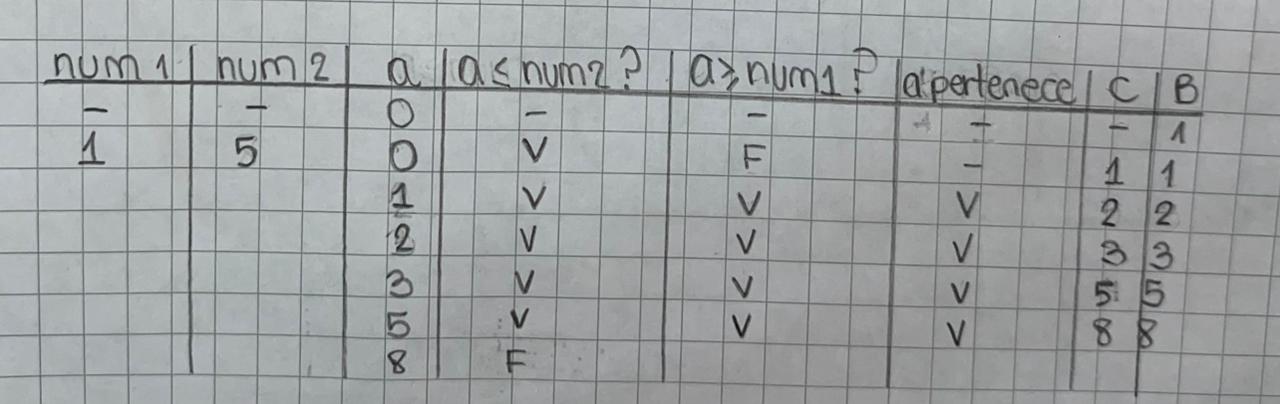 num1 | num2 | a | a≤num2? | a≥num1? | a pertenece | C | B
- - 0 - - - - 1
1 5 0 V F - 1 1
1 V V V 2 2
2 V V V 3 3
3 V V V 5 5
5 V V V 8 8
8 F